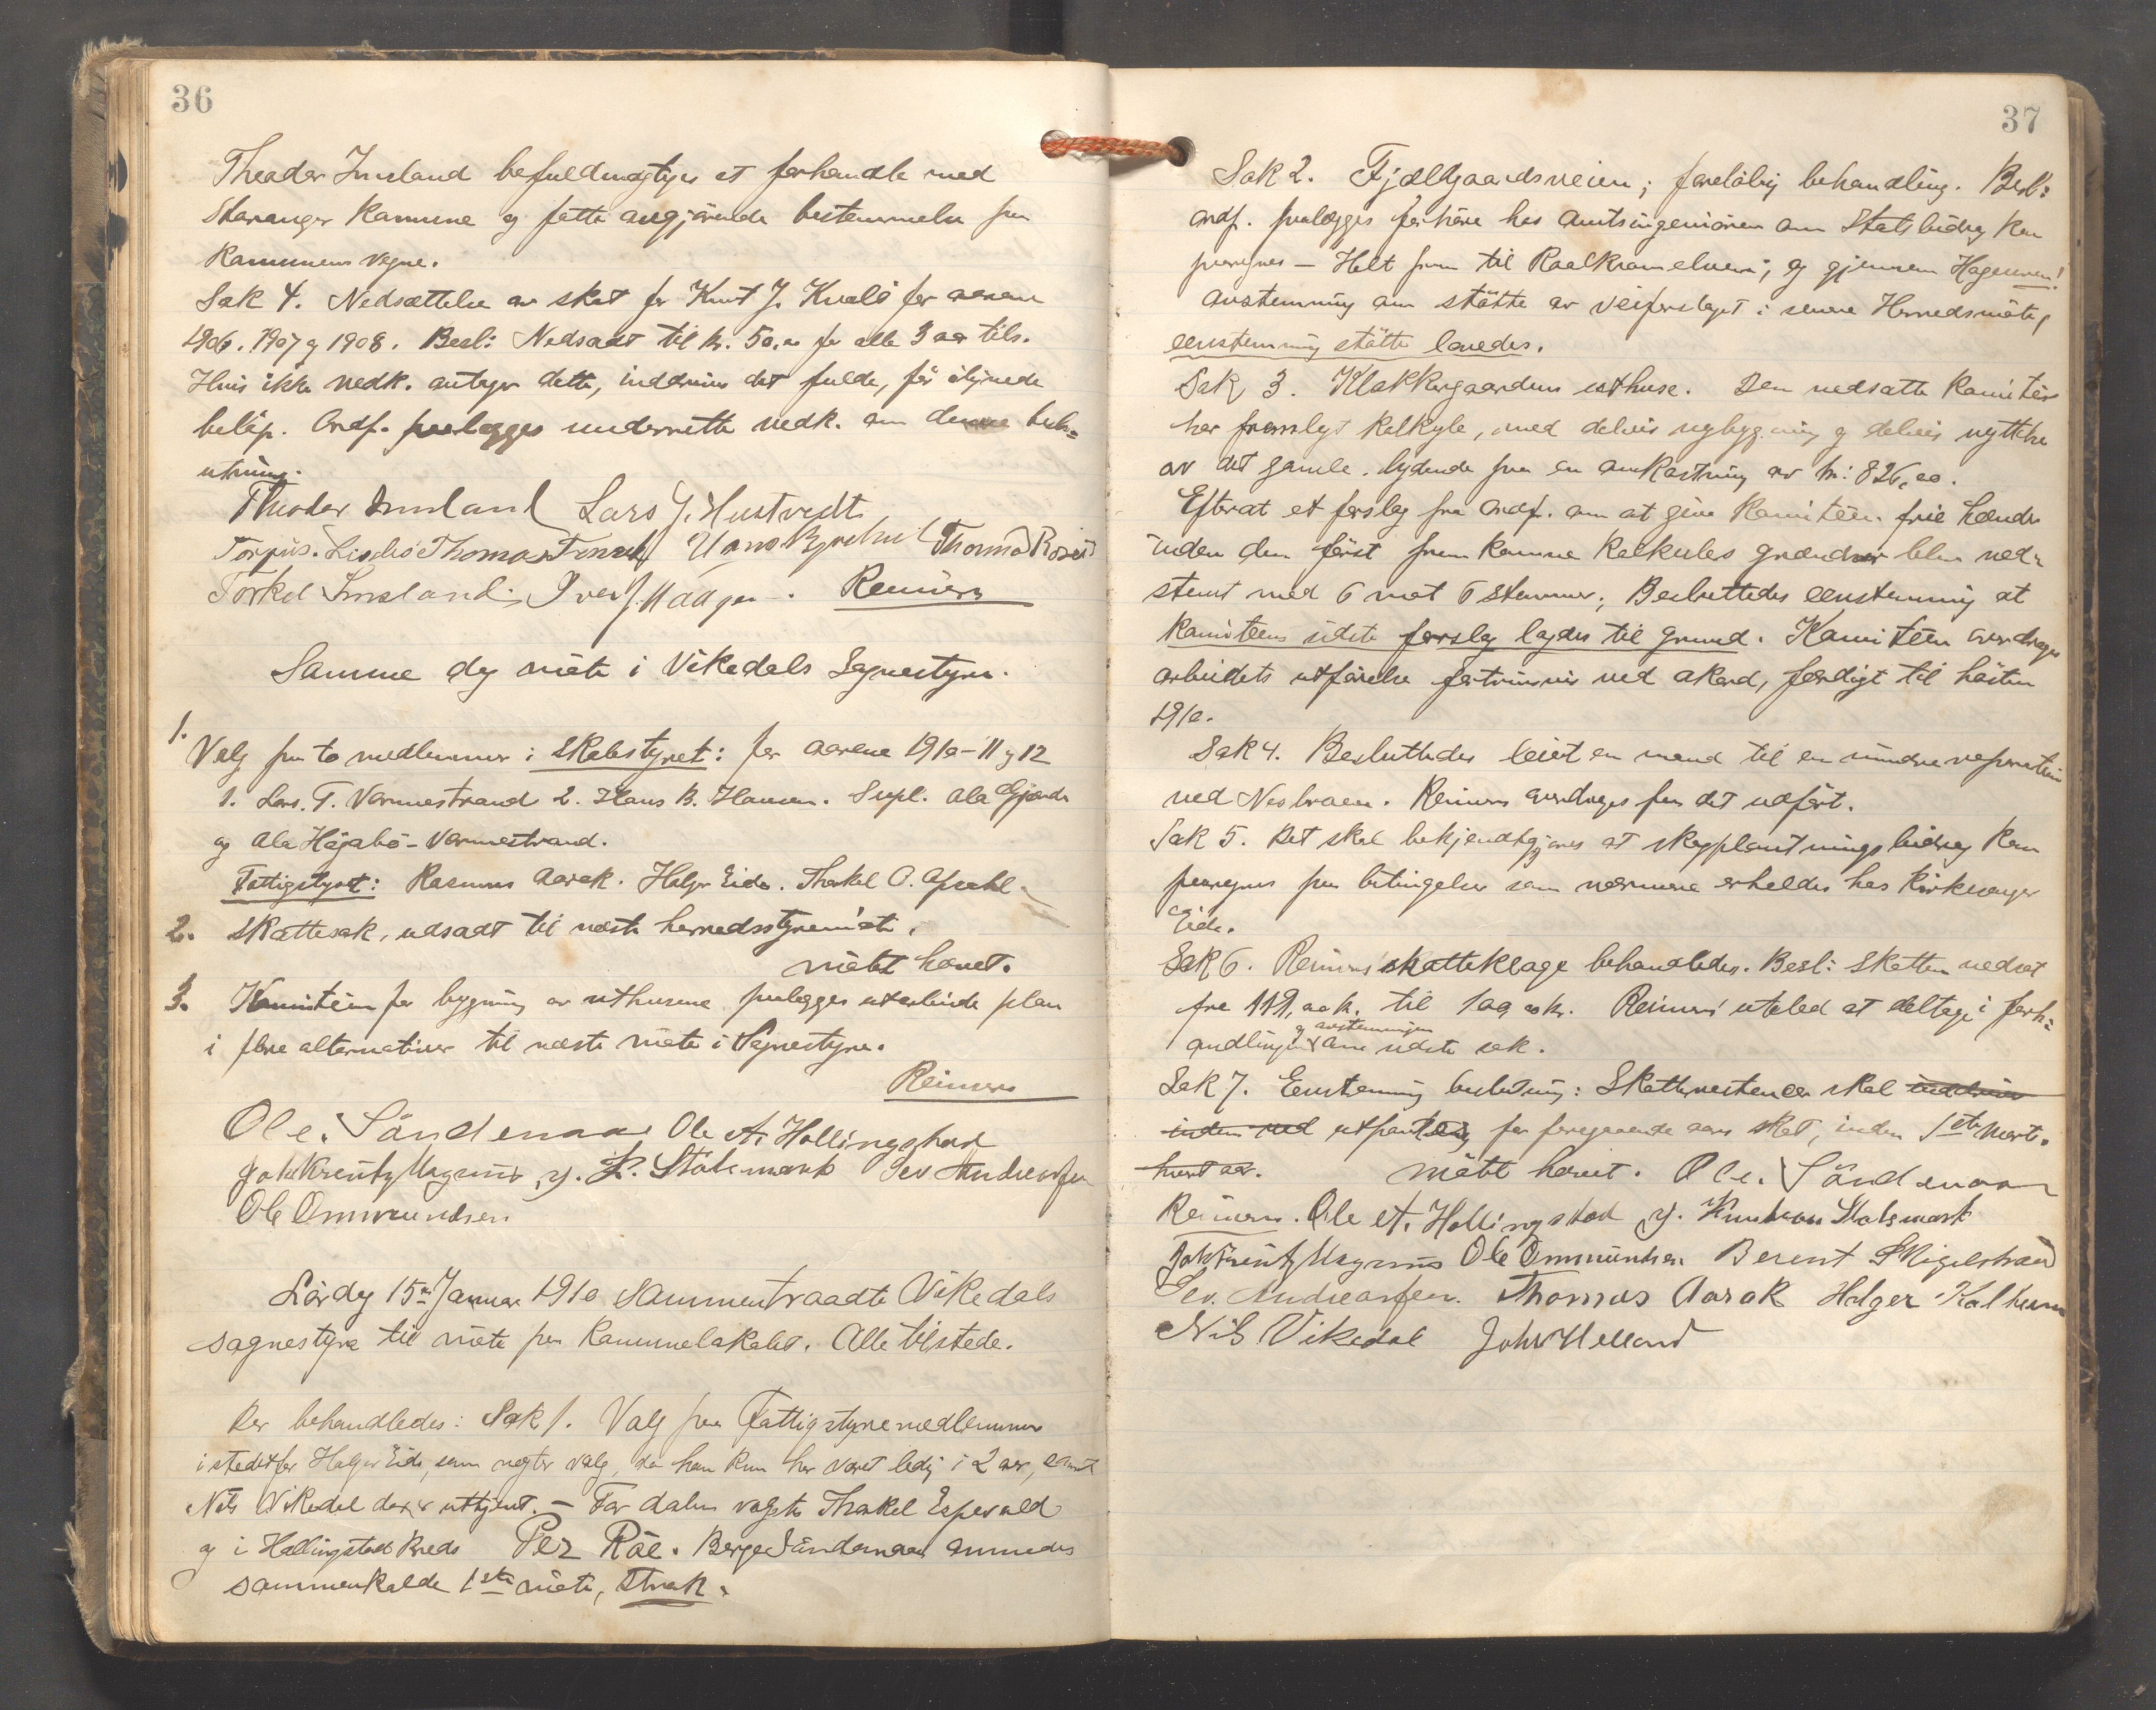 36
Theodor Imsland befuldmægtiges at forhandle med
Stavanger Kommune og fatte avgjørende bestemmelse paa
Kommunens vegne.
Sak 4. Nedsættelse av skat for Knut J. Kvalö for aarene
1906. 1907 og 1908. Besl: Nedsadt til kr. 50.00 for alle 3 aar tils.
Hvis ikke vedk. antager dette, inddrives det fulde, før ilignede
beløp. Ordf. paalægges underrette vedk. om denne beslutning.
Theodor Imsland Lars J. Hustvedt
Thomas
Torkel Imsland. Iver J. Reimers
Samme dag møte i Vikedals Sognestyre.
1.
Valg paa to medlemmer i Skolestyret: for aarene 1910-11 og 12
1. Lars T. Vormestrand 2. Hans B. Hansen. Supl. Ola Gjærde
og Ola Höjabö-Vormestrand.
Fattigstyret: Rasmus Aarak. Holger Eide. Thorkel O.
2. Skattesak, udsadt til næste herredsstyremöte.
møtet hævet.
3. Komiteen for bygning av uthusene paalægges utarbeide plan
i flere alternativer til næste møte i Sognestyre.
Reimers
Ole. Söndenaa Ole A. Hollingstad
Joh Kreutz Magnus J. K. Stölsmark Sev Andreassen
Ole Ommundsen
Lördag 15de Januar 1910 sammentraadte Vikedals
sognestyre til møte paa Kommunelokalet. Alle tilstede.
Der behandledes: Sak 1. Valg paa Fattigstyremedlemmer
istedetfor Holger Eide, som nægter valg, da han kun har været ledig i 2 aar, samt
Nils Vikedal der er uttjent. - For dalen valgtes Thorkel Espevold
og i Hollingstad Kreds Per Röe. Berge Söndenaa anmodes
sammenkalde 1ste møte, strak.
37
Sak 2. Fjældgaardsveien; foreløbig behandling. Besl:
Ordf. paalægges forhöre hos Amtsingeniören om Statsbidrag kan
paaregnes - Helt frem til; og gjennem
Avstemning om støtte av veiforslaget i senere Herredsmöte,
eenstemmig støtte lovedes.
Sak 3. Klokkergaardens uthuse. Den nedsatte Komite
har fremlagt kalkyle, med delvis nybygning og delvis nyttelse
av det gamle. lydende paa en omkostning av kr: 826,00.
Efterat et forslag fra Ordf. om at give Komiteen frie hænder
inden den først fremkomne kalkules grændser blev ned-
stemt med 6 mot 6 stemmer; Besluttedes eenstemmig at
Komiteens sidste forslag lagdes til grund. Komiteen overdrages
arbeidets utførelse fortrinsvis ved akord, færdigt til høsten
1910.
Sak 4. Besluttedes leiet en mand til en mindre reparation
ved Nesbroen. Reimers overdrages faa det udført.
Sak 5. Det skal bekjendtgjøres at skogplantningsbidrag kan
paaregnes paa betingelser som nærmere erholdes hos Kirkeverger
Eide.
Sak 6. Reimers' skatteklage behandledes. Besl: Skatten nedsat
fra 119,00 k. til 109 00 kr. Reimers uteblev at deltage i forh-
andlingen og avstemningen om sidste sak.
Sak 7. Eenstemmig beslutning: Skatterestancer skal inddrives
inden ved utpantning for foregaaende aars skat, inden 1ste Marts.
hvert aar. møtet hævet. Ole. Söndenaa
Reimers. Ole A. Hollingstad J. Knutson Stölsmark
Joh Kreutz Magnus Ole Ommundsen Berent Skigelstrand
Sev. Andreassen. Thomas Aarak Holger Kalheim
Nils Vikedal John Helland